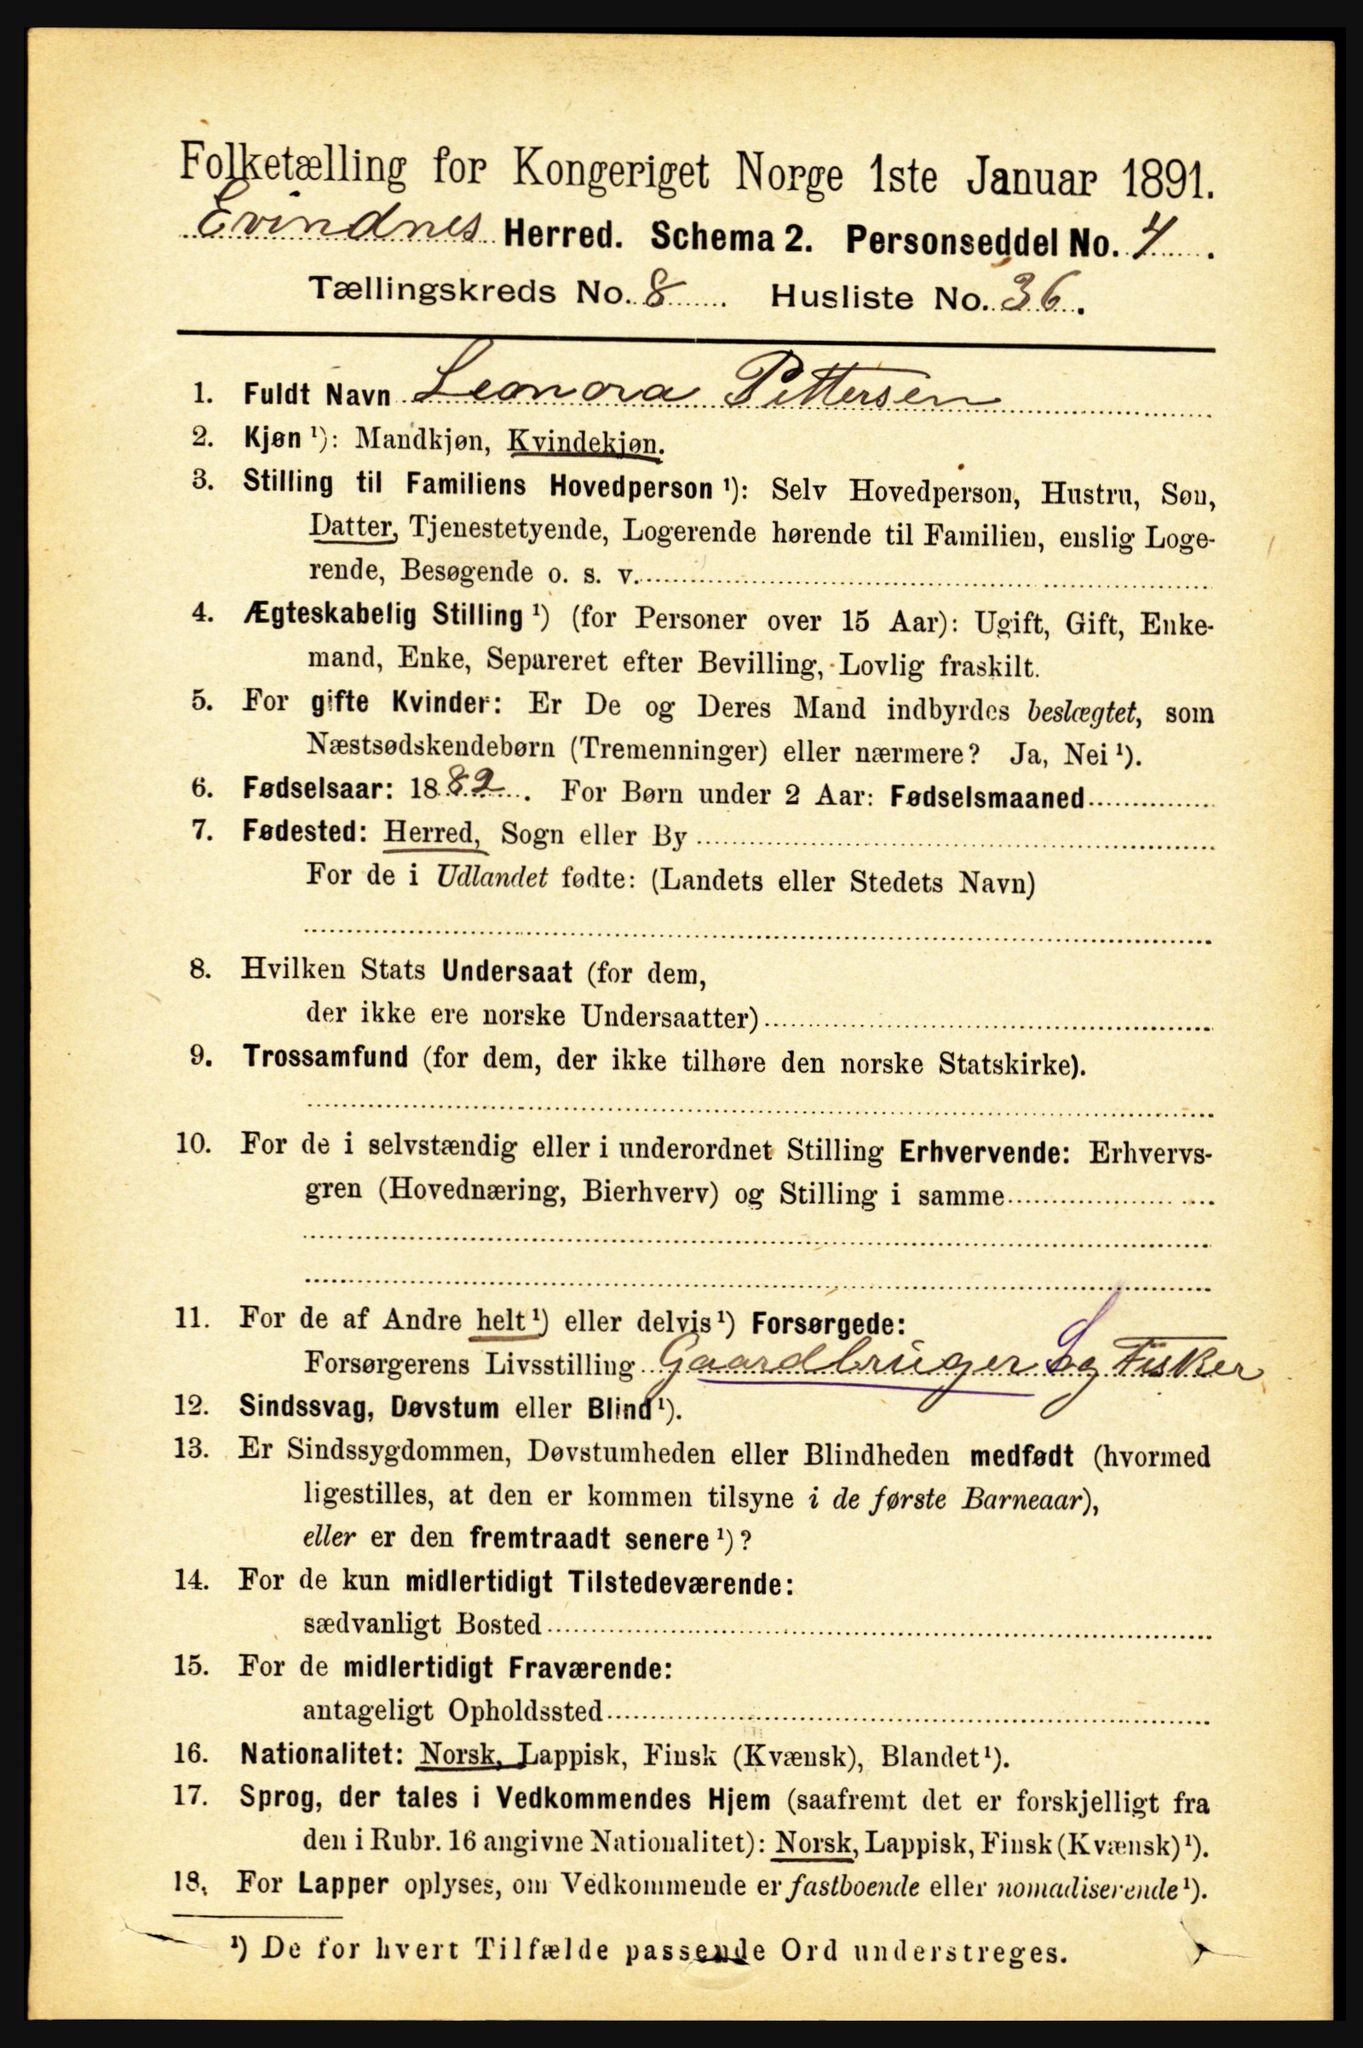 Folketælling for Kongeriget Norge 1ste Januar 1891.
Evindnes Herred. Schema 2. Personseddel No. 4.
Tællingskreds No. 8. Husliste No. 36.
1. Fuldt Navn Leonora Pettersen
2. Kjøn ¹): Mandkjøn, Kvindekjøn.
3. Stilling til Familiens Hovedperson ¹): Selv Hovedperson, Hustru, Søn,
Datter, Tjenestetyende, Logerende hørende til Familien, enslig Loge-
rende, Besøgende o. s. v.
4. Ægteskabelig Stilling ¹) (for Personer over 15 Aar): Ugift, Gift, Enke-
mand, Enke, Separeret efter Bevilling, Lovlig fraskilt.
5. For gifte Kvinder: Er De og Deres Mand indbyrdes beslægtet, som
Næstsødskendebørn (Tremenninger) eller nærmere? Ja, Nei ¹).
6. Fødselsaar: 1882. For Børn under 2 Aar: Fødselsmaaned
7. Fødested: Herred, Sogn eller By
For de i Udlandet fødte: (Landets eller Stedets Navn)
8. Hvilken Stats Undersaat (for dem,
der ikke ere norske Undersaatter)
9. Trossamfund (for dem, der ikke tilhøre den norske Statskirke).
10. For de i selvstændig eller i underordnet Stilling Erhvervende: Erhvervs-
gren (Hovednæring, Bierhverv) og Stilling i samme
11. For de af Andre helt ¹) eller delvis ¹) Forsørgede:
Forsørgerens Livsstilling Gaardbruger S og Fisker
12. Sindssvag, Døvstum eller Blind ¹).
13. Er Sindssygdommen, Døvstumheden eller Blindheden medfødt (hvormed
ligestilles, at den er kommen tilsyne i de første Barneaar),
eller er den fremtraadt senere ¹)?
14. For de kun midlertidigt Tilstedeværende:
sædvanligt Bosted
15. For de midlertidigt Fraværende:
antageligt Opholdssted
16. Nationalitet: Norsk, Lappisk, Finsk (Kvænsk), Blandet ¹).
17. Sprog, der tales i Vedkommendes Hjem (saafremt det er forskjelligt fra
den i Rubr. 16 angivne Nationalitet): Norsk, Lappisk, Finsk (Kvænsk) ¹).
18. For Lapper oplyses, om Vedkommende er fastboende eller nomadiserende ¹).
¹) De for hvert Tilfælde passende Ord understreges.